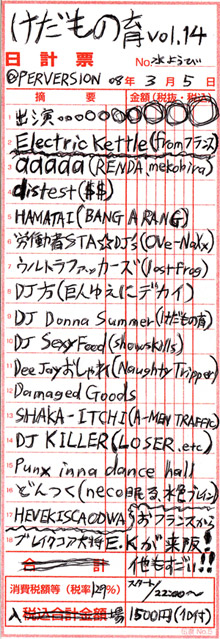 けだもの育 vol.14
日計票 No.水ようび
@PERVERSION 08年 3月 5日
摘要 金額(税抜・税込)
1 出演
2 Electric Kettle (from フランス)
3 aaaaa (RENDA, mekohira)
4 distest ($$)
5 HAMATAI (BANG A RANG)
6 労働者STA☆DJ's (OVe-NaXx)
7 ウルトラファッカーズ (lostfrog)
8 DJ方 (巨人ゆえにデカイ)
9 DJ Donna Summer (けだもの育)
10 DJ Sexy Food (showskills)
11 Dee Jay おしゃれ (Naughty Tripper)
12 Damaged Goods
13 SHAKA-ITCHI (A-MEN TRAFFIC)
14 DJ KILLER (LOSER, etc)
15 Punx inna dance hall
16 どんつく (neco眠る, 水色ブレイン)
17 HEVEKISCAODWA おフランスから
18 ブレイクコア大将 E.Kが来阪!
合計 他もすごい!!
消費税額等(税率129%) スタート/22:00〜
入 税込合計金額 場 1500円(1D付)